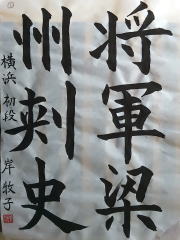 将軍梁
州刺史
横浜 初段 岸牧子